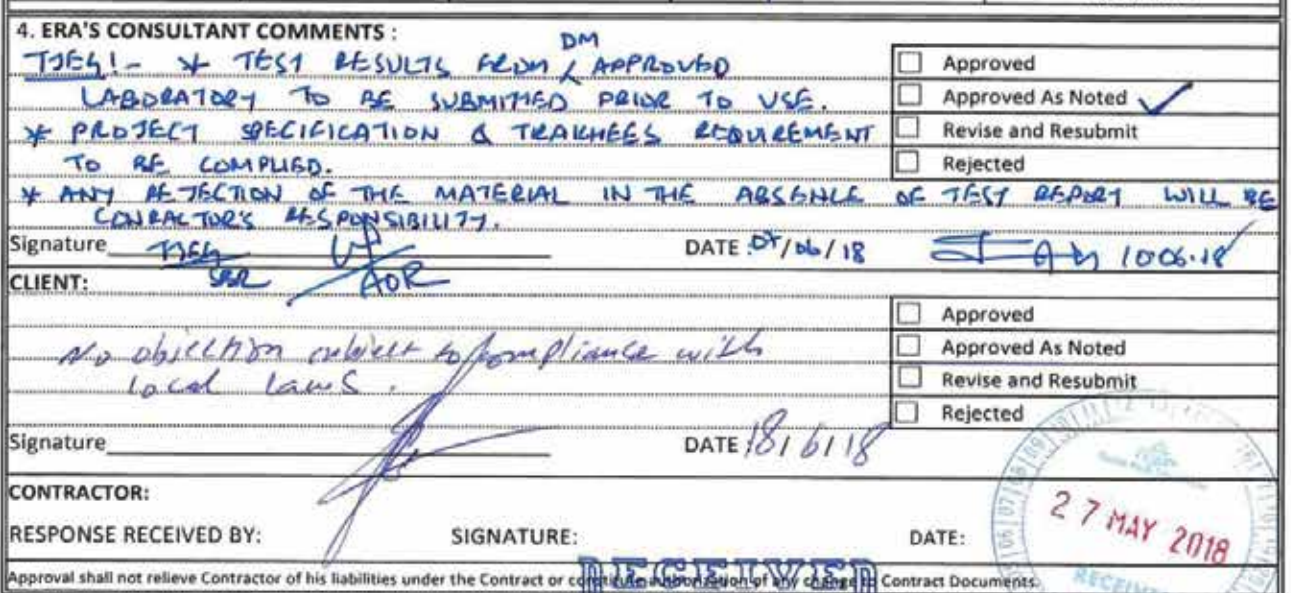 4. ERA'S CONSULTANT COMMENTS :
DM
TJEG!- * TEST RESULTS FROM ^ APPROVED
LABORATORY TO BE SUBMITTED PRIOR TO USE.
* PROJECT SPECIFICATION & TRAKHEES REQUIREMENT
TO BE COMPLIED.
* ANY REJECTION OF THE MATERIAL IN THE ABSENCE OF TEST REPORT WILL BE
CONRACTOR'S RESPONSIBILITY.
Approved
Approved As Noted ✓
Revise and Resubmit
Rejected
Signature TJEG DATE 07/06/18 10.06.18
SBR AOR
CLIENT:
No objection subject to compliance with
local laws.
Approved
Approved As Noted
Revise and Resubmit
Rejected
Signature DATE 18/6/18
CONTRACTOR:
RESPONSE RECEIVED BY: SIGNATURE: DATE:
27 MAY 2018
RECEIVED
Approval shall not relieve Contractor of his liabilities under the Contract or constitute authorization of any change to Contract Documents.
RECEIVED